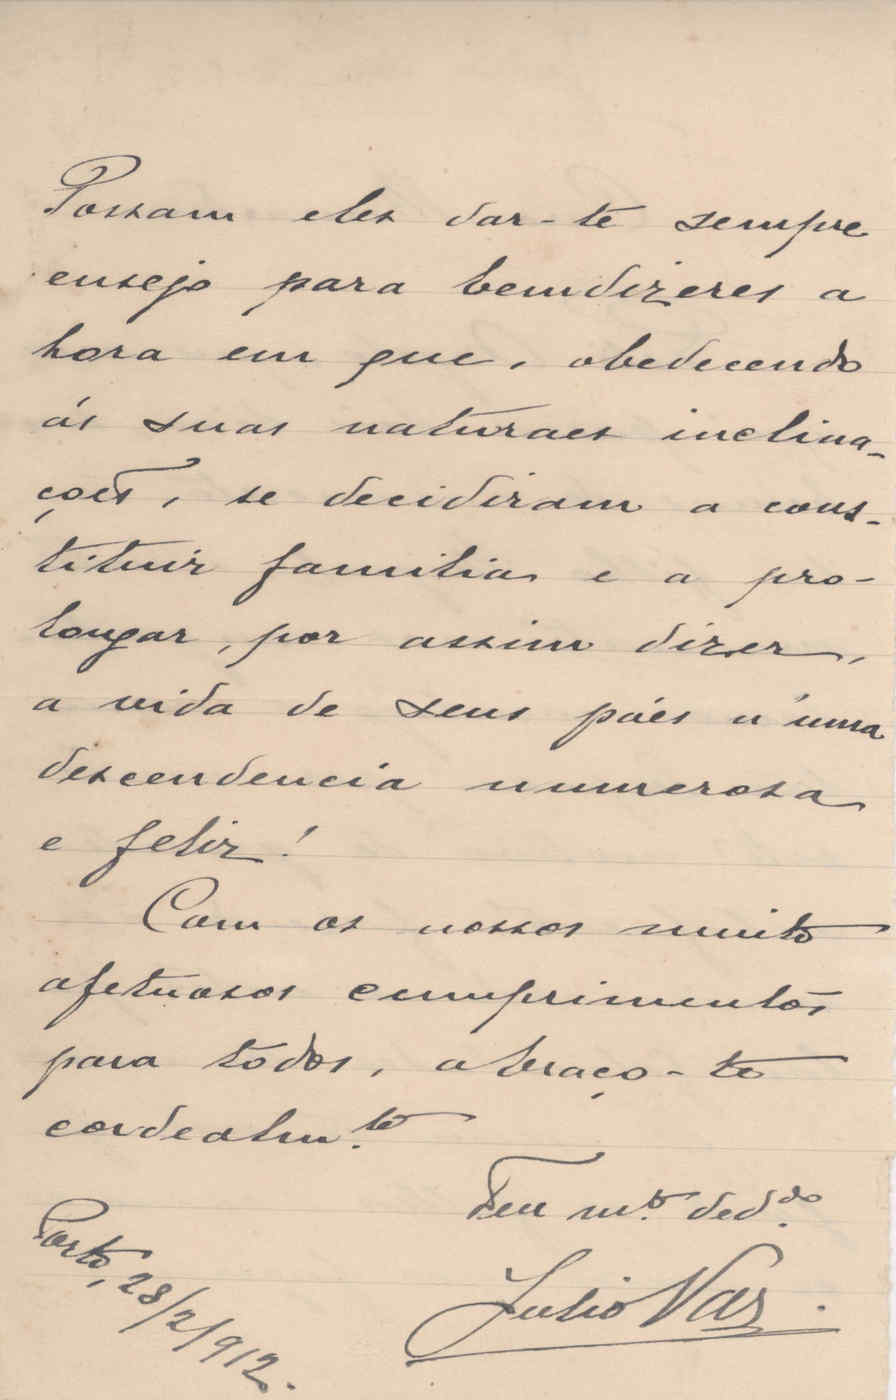 Possam eles dar-te sempre
ensejo para bemdizeres a
hora em que, obedecendo
ás suas naturaes inclina-
ções, se decidiram a cons-
tituir familia e a pro-
longar, por assim dizer,
a vida de seus páes n'uma
descendencia numerosa
e feliz!
Com os nossos muito
afetuosos cumprimentos
para todos, abraço-te
cordealm.te
Teu m.to ded.do
Julio Vaz.
Porto, 28/2/912.